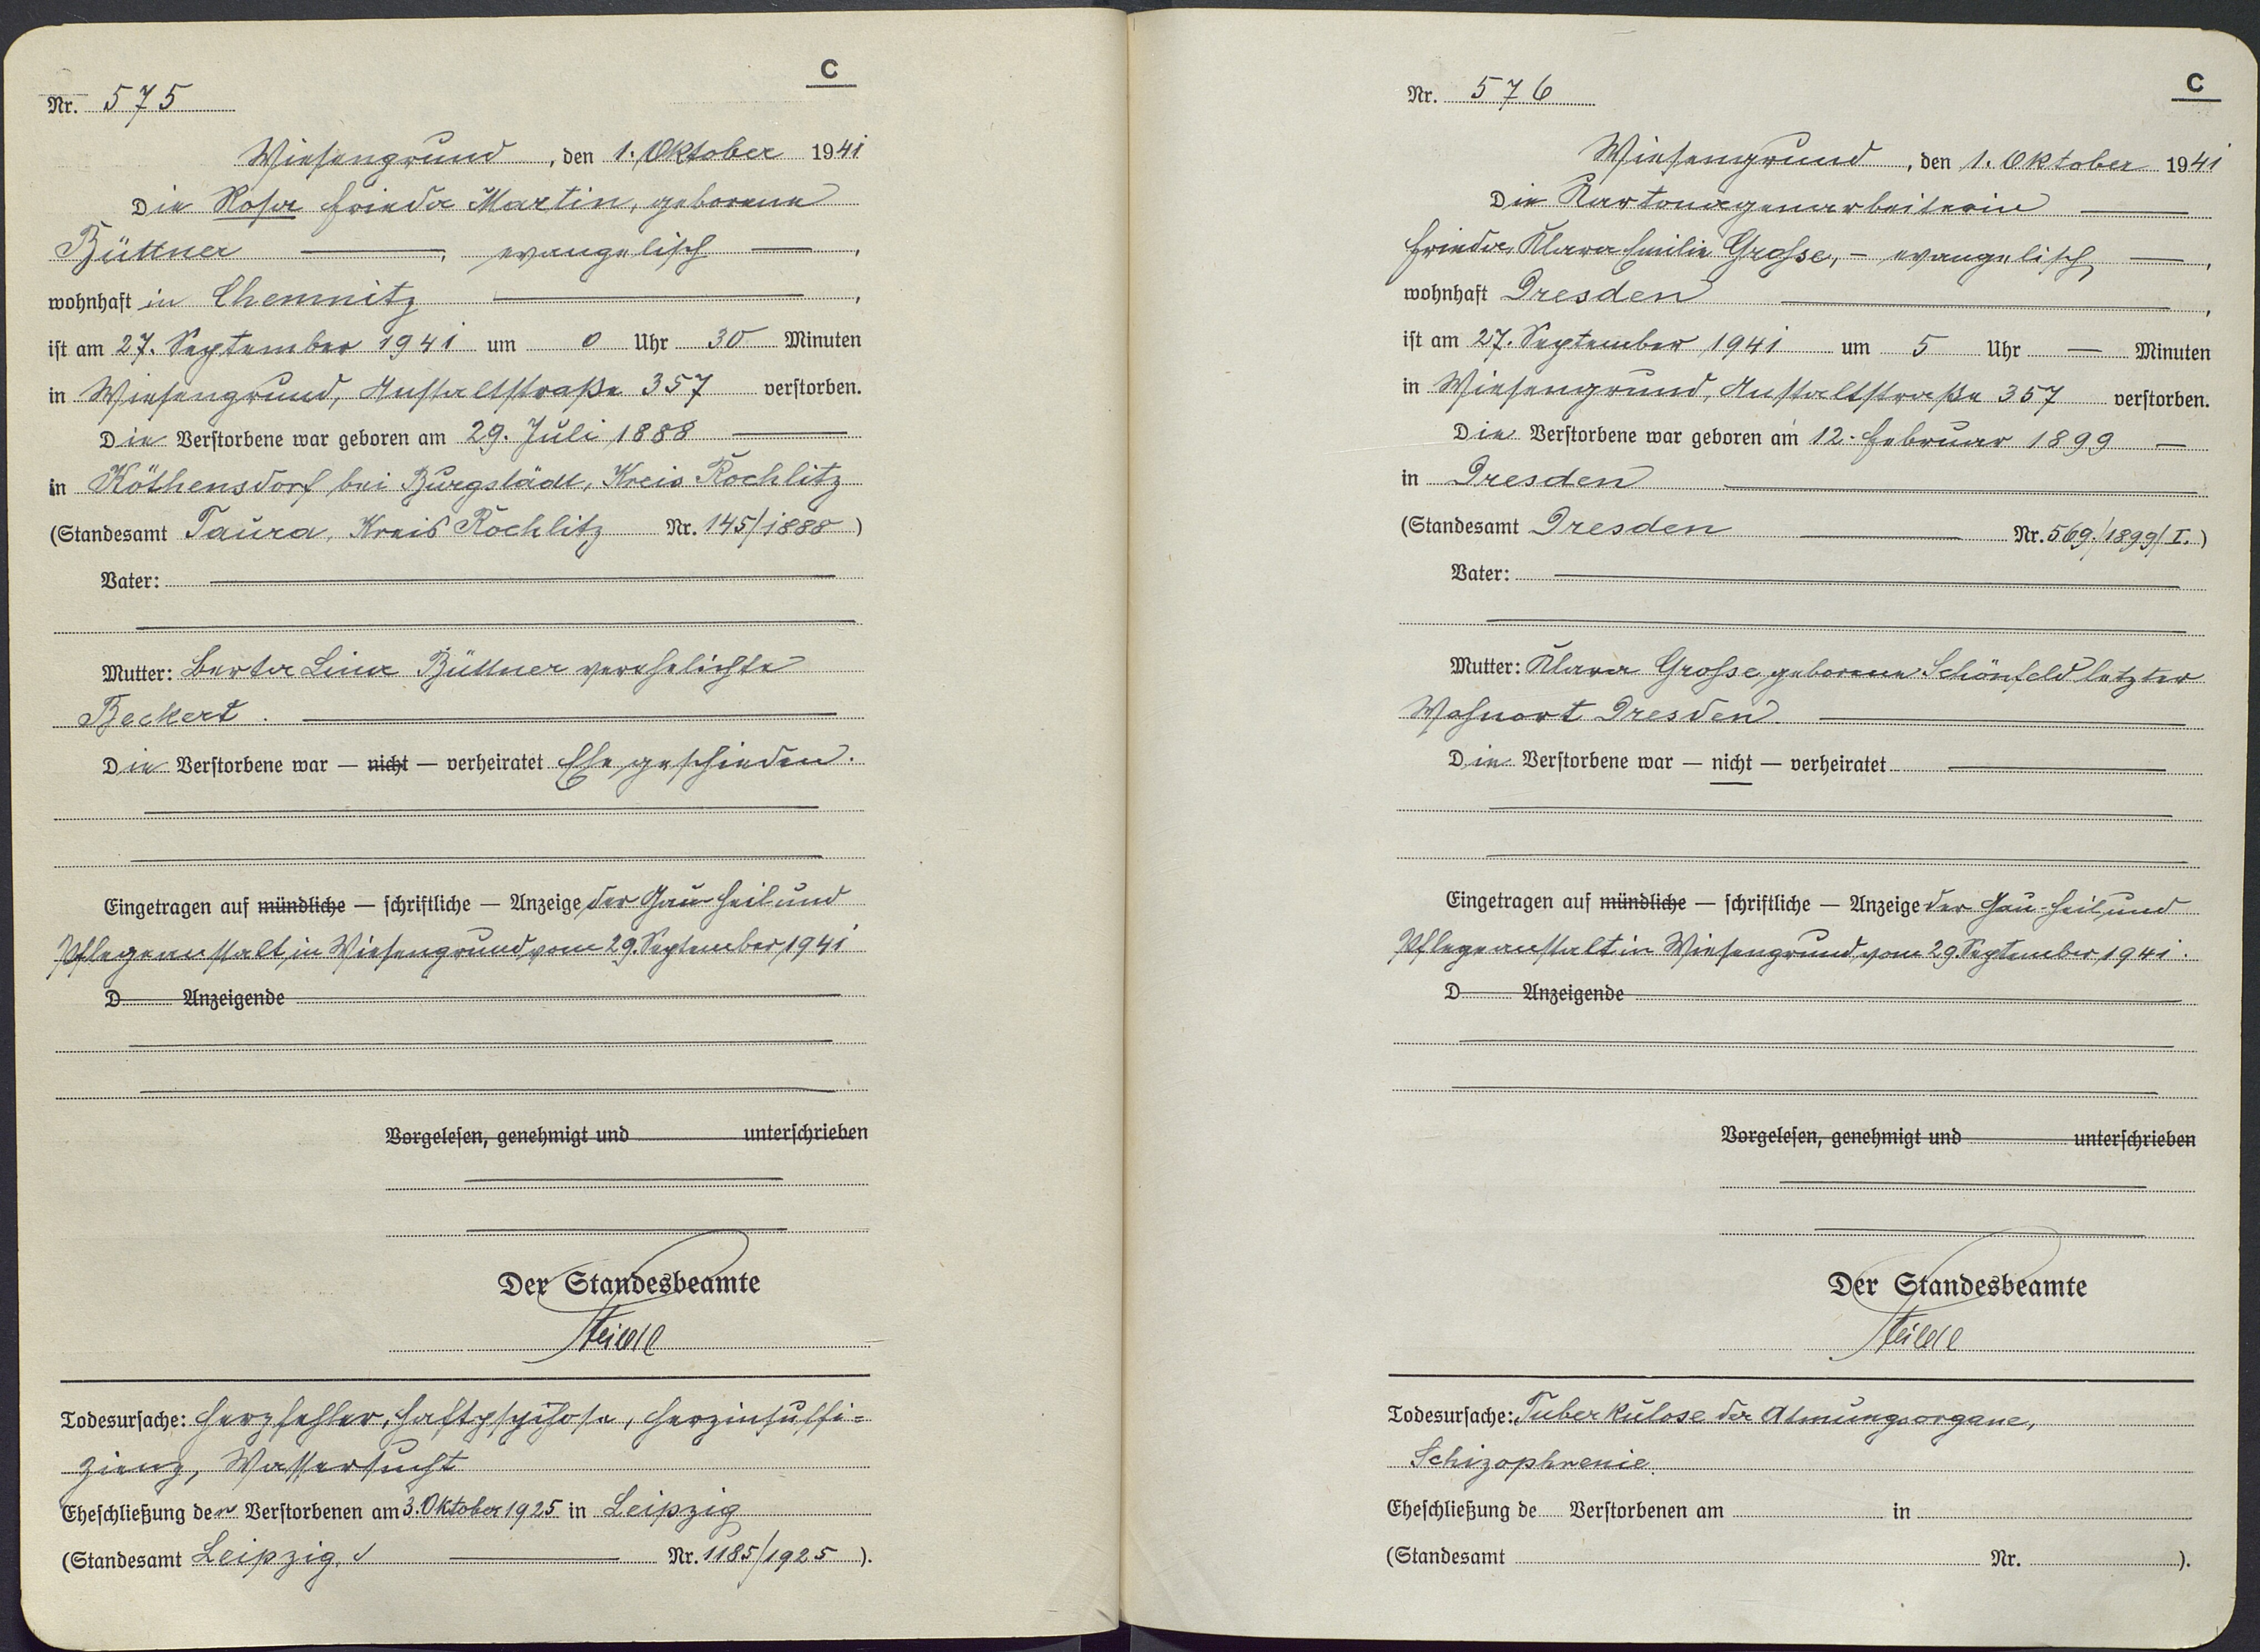 C
Nr. 575
Wiesengrund, den 1. Oktober 1941
Die Rosa Frieda Martin, geborene
Büttner — , evangelisch — ,
wohnhaft in Chemnitz — ,
ist am 27. September 1941 um 0 Uhr 30 Minuten
in Wiesengrund, Anstaltstraße 357 verstorben.
Die Verstorbene war geboren am 29. Juli 1888 —
in Köthensdorf bei Burgstädt, Kreis Rochlitz
(Standesamt Taura, Kreis Rochlitz Nr. 145/1888)
Vater: —
Mutter: Berta Lina Büttner verehelichte
Beckert. —
Die Verstorbene war — nicht — verheiratet Ehe geschieden.
Eingetragen auf mündliche — schriftliche — Anzeige der Gau-Heil und
Pflegeanstalt in Wiesengrund vom 29. September 1941
D Anzeigende
Vorgelesen, genehmigt und unterschrieben
Der Standesbeamte
Todesursache: Herzfehler, Haftpsychose, Herzinsuffi-
zienz, Wassersucht
Eheschließung der Verstorbenen am 3. Oktober 1925 in Leipzig
(Standesamt Leipzig I — Nr. 1185/1925).
C
Nr. 576
Wiesengrund, den 1. Oktober 1941
Die Kartonagenarbeiterin —
Frieda Klara Emilie Grosse, – evangelisch — ,
wohnhaft Dresden — ,
ist am 27. September 1941 um 5 Uhr — Minuten
in Wiesengrund, Anstaltstraße 357 verstorben.
Die Verstorbene war geboren am 12. Februar 1899 —
in Dresden —
(Standesamt Dresden — Nr. 569./1899/I.)
Vater: —
Mutter: Klara Grosse, geborene Schönfeld letzter
Wohnort Dresden. —
Die Verstorbene war — nicht — verheiratet —
Eingetragen auf mündliche — schriftliche — Anzeige der Gau-Heil und
Pflegeanstalt in Wiesengrund vom 29. September 1941.
D Anzeigende
Vorgelesen, genehmigt und unterschrieben
Der Standesbeamte
Todesursache: Tuberkulose der Atmungsorgane,
Schizophrenie.
Eheschließung de Verstorbenen am in
(Standesamt Nr. ).